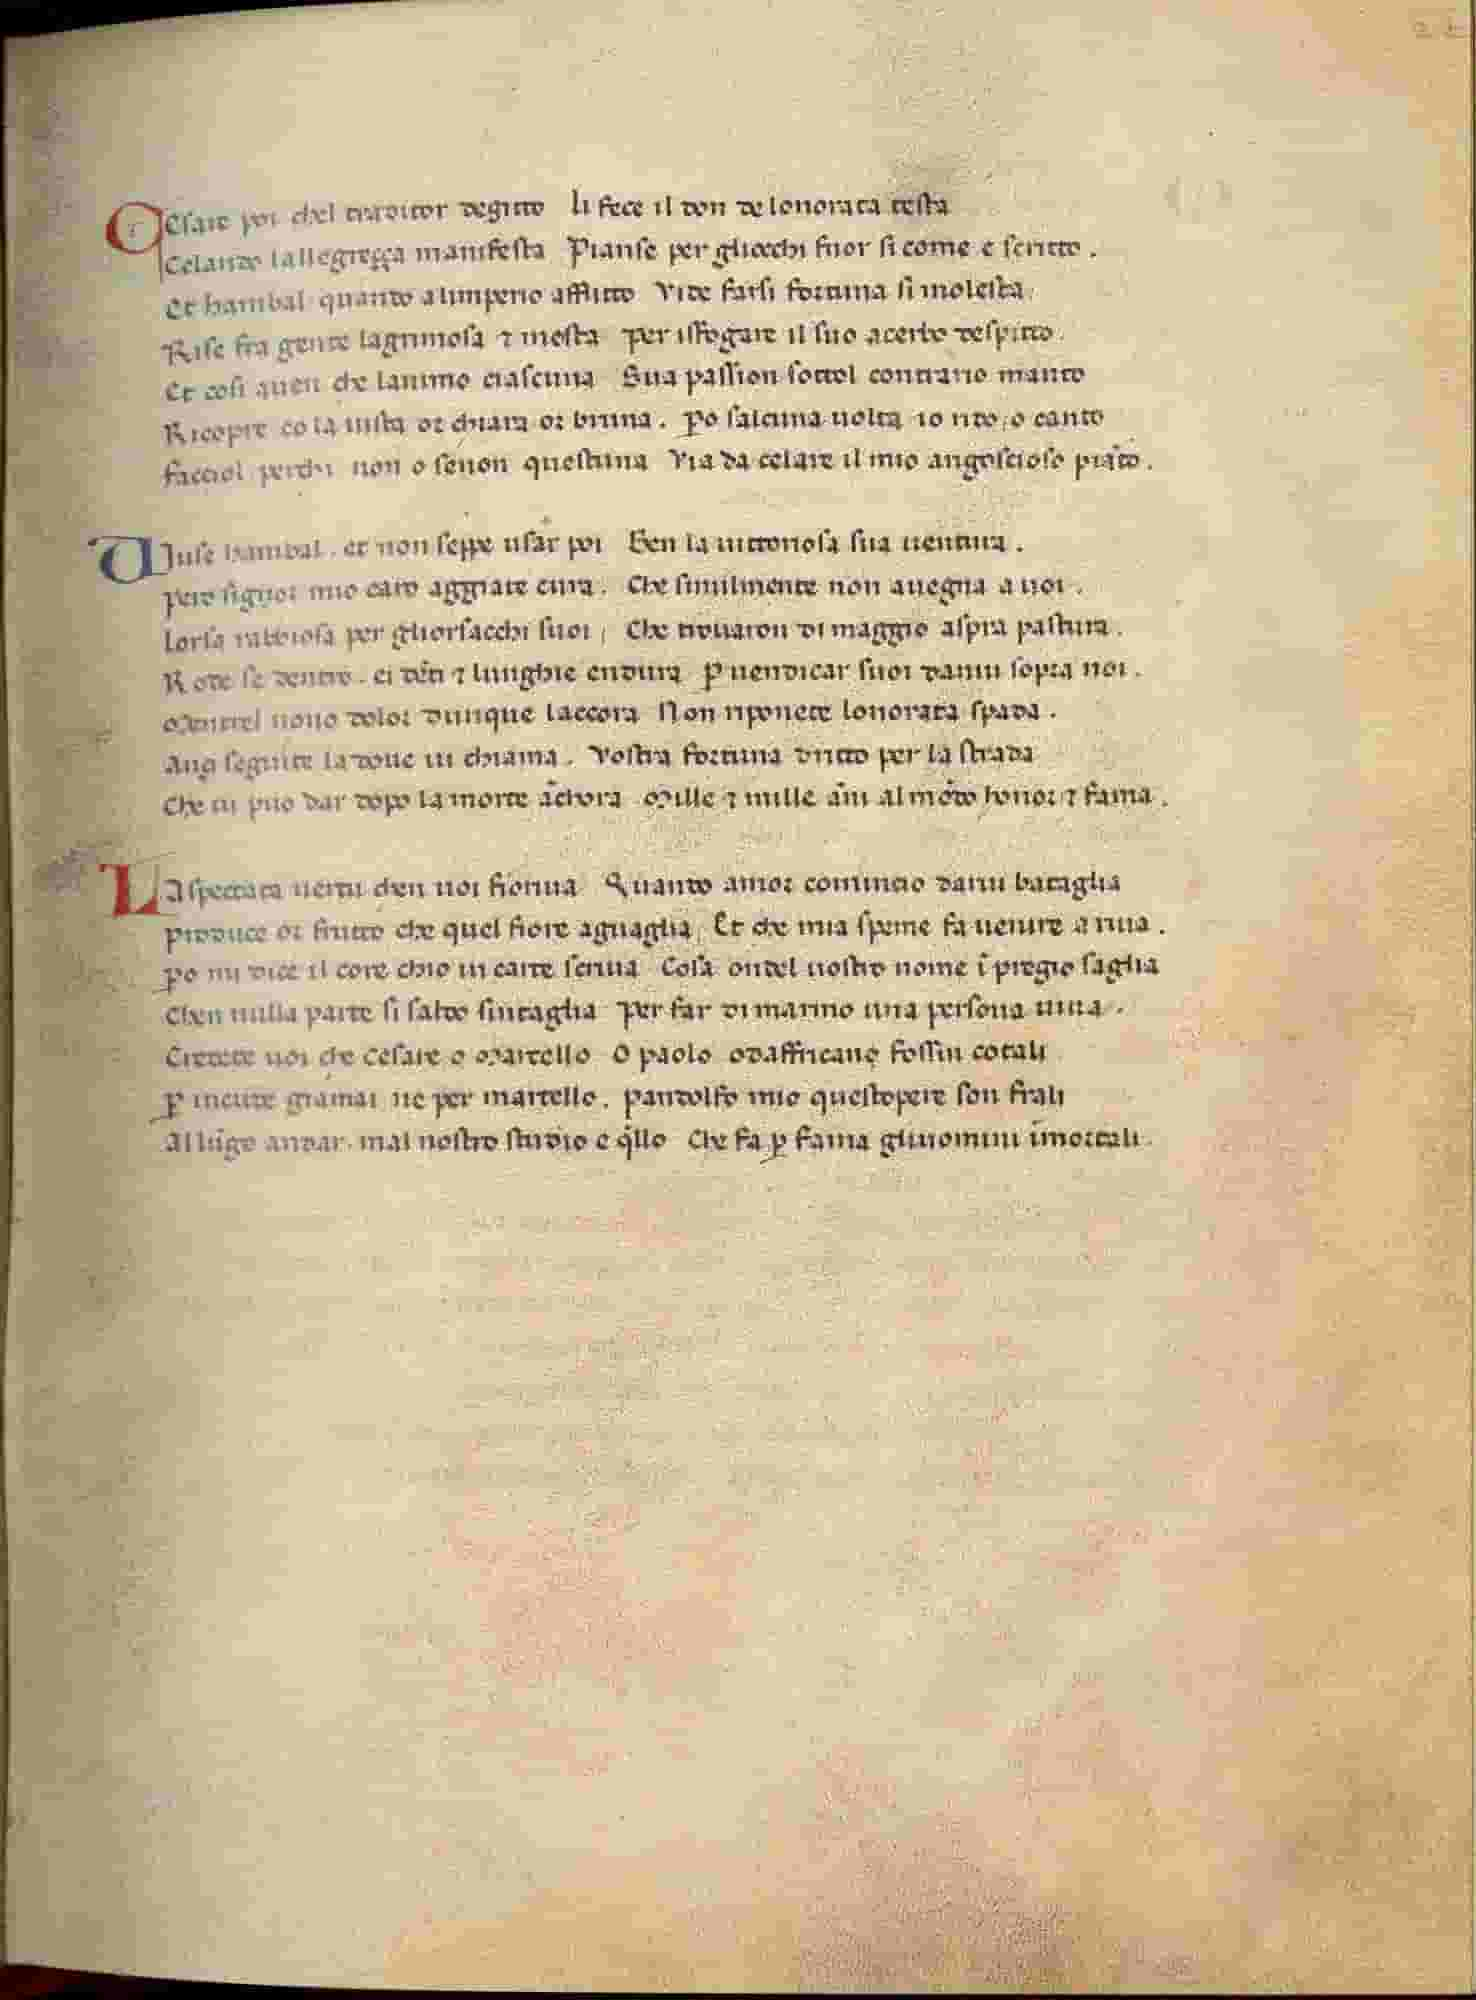 CEsare poi chel traditor degitto li fece il don de lonorata testa
Celando lallegreçça manifesta Pianse per gliocchi fuor si come e scritto .
Et hanibal quanto alimperio afflitto Vide farsi fortuna si molesta
Rise fra gente lagrimosa ⁊ mesta per isfogare il suo acerbo despitto .
Et cosi auen che lanimo ciascuna Sua passion sottol contrario manto
Ricopre co la uista or chiara or bruna . ꝑo salcuna uolta io rido o canto
facciol perchi non o senon questuna Via da celare il mio angoscioso piãto .
VInse hanibal . et non seppe usar poi Ben la uittoriosa sua uentura .
pero signor mio caro aggiate cura . Che similmente non auegna a uoi .
lorsa rabbiosa per gliorsacchi suoi , Che trouaron di maggio aspra pastura .
Rode se dentro . ei dẽti ⁊ lunghie endura ꝑ uendicar suoi danni sopra noi .
Mentrel nouo dolor dunque laccora Non riponete lonorata spada .
Anҫi seguite la doue ui chiama . Vostra fortuna dritto per la strada
Che ui puo dar dopo la morte ãchora Mille ⁊ mille ãni al mõdo honor ⁊ fama .
LAspectata uertu chen uoi fioriua Quanto amor comincio darui bataglia
produce or frutto che quel fiore aguaglia , Et che mia speme fa uenire a riua .
ꝑo mi dice il core chio in carte scriua Cosa ondel uostro nome ĩ pregio saglia
Chen nulla parte si saldo sintaglia per far di marmo una persona uiua .
Credete uoi che Cesare o Marcello O paolo odaffricano fossin cotali
ꝑ incude giamai ne per martello . pandolfo mio questopere son frali
Al lũgo andar . mal nostro studio e q̃llo Che fa ꝑ fama gliuomini ĩmortali .